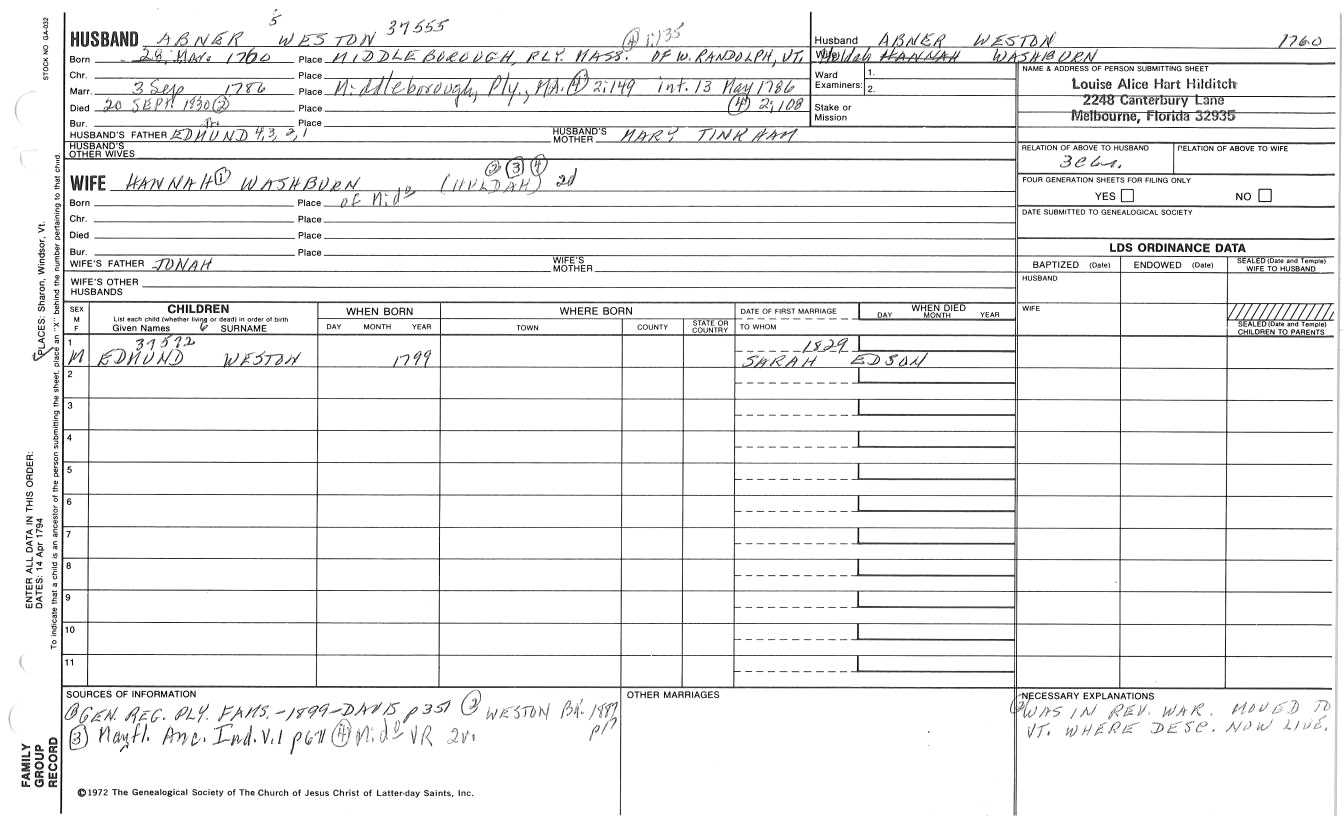 STOCK NO. GA-032
5 37555
HUSBAND ABNER WESTON ④ 1:135
Born 28 Mar. 1760 Place MIDDLEBOROUGH, PLY. MASS. OF W. RANDOLPH, VT.
Chr. Place
Marr. 3 Sep 1786 Place Middleborough, Ply., MA. ④ 2:149 int. 13 May 1786
Died 20 SEPT 1830 ② Place ④ 2:108
Bur. Place
HUSBAND'S FATHER EDMUND 4, 3, 2, 1 HUSBAND'S MOTHER MARY TINKHAM
HUSBAND'S OTHER WIVES
WIFE HANNAH ① WASHBURN (HULDAH) ② ③ ④ 2d
Born Place of Midº
Chr. Place
Died Place
Bur. Place
WIFE'S FATHER JONAH WIFE'S MOTHER
WIFE'S OTHER HUSBANDS
Husband ABNER WESTON 1760
Wife Huldah HANNAH WASHBURN
Ward Examiners: 1. 2.
Stake or Mission
NAME & ADDRESS OF PERSON SUBMITTING SHEET
Louise Alice Hart Hilditch
2248 Canterbury Lane
Melbourne, Florida 32935
RELATION OF ABOVE TO HUSBAND RELATION OF ABOVE TO WIFE
FOUR GENERATION SHEETS FOR FILING ONLY
YES NO
DATE SUBMITTED TO GENEALOGICAL SOCIETY
LDS ORDINANCE DATA
BAPTIZED (Date) ENDOWED (Date) SEALED (Date and Temple) WIFE TO HUSBAND
HUSBAND
WIFE
SEALED (Date and Temple) CHILDREN TO PARENTS
SEX M F
CHILDREN
List each child (whether living or dead) in order of birth
Given Names 6 SURNAME
WHEN BORN
DAY MONTH YEAR
WHERE BORN
TOWN COUNTY STATE OR COUNTRY
DATE OF FIRST MARRIAGE
TO WHOM
WHEN DIED
DAY MONTH YEAR
1 37572 1829
M EDMUND WESTON 1799 SARAH EDSON
2
3
4
5
6
7
8
9
10
11
SOURCES OF INFORMATION
① GEN. REG. PLY. FAMS. - 1899 - DAVIS p 351 ② WESTON BK. 1887
③ Mayfl. Anc. Ind. V.1 p671 ④ Midº VR 2v.
OTHER MARRIAGES
NECESSARY EXPLANATIONS
② WAS IN REV. WAR. MOVED TO
VT. WHERE DESC. NOW LIVE.
©1972 The Genealogical Society of The Church of Jesus Christ of Latter-day Saints, Inc.
FAMILY GROUP RECORD
ENTER ALL DATA IN THIS ORDER:
DATES: 14 Apr 1794
PLACES: Sharon, Windsor, Vt.
To indicate that a child is an ancestor of the person submitting the sheet, place an "X" behind the number pertaining to that child.